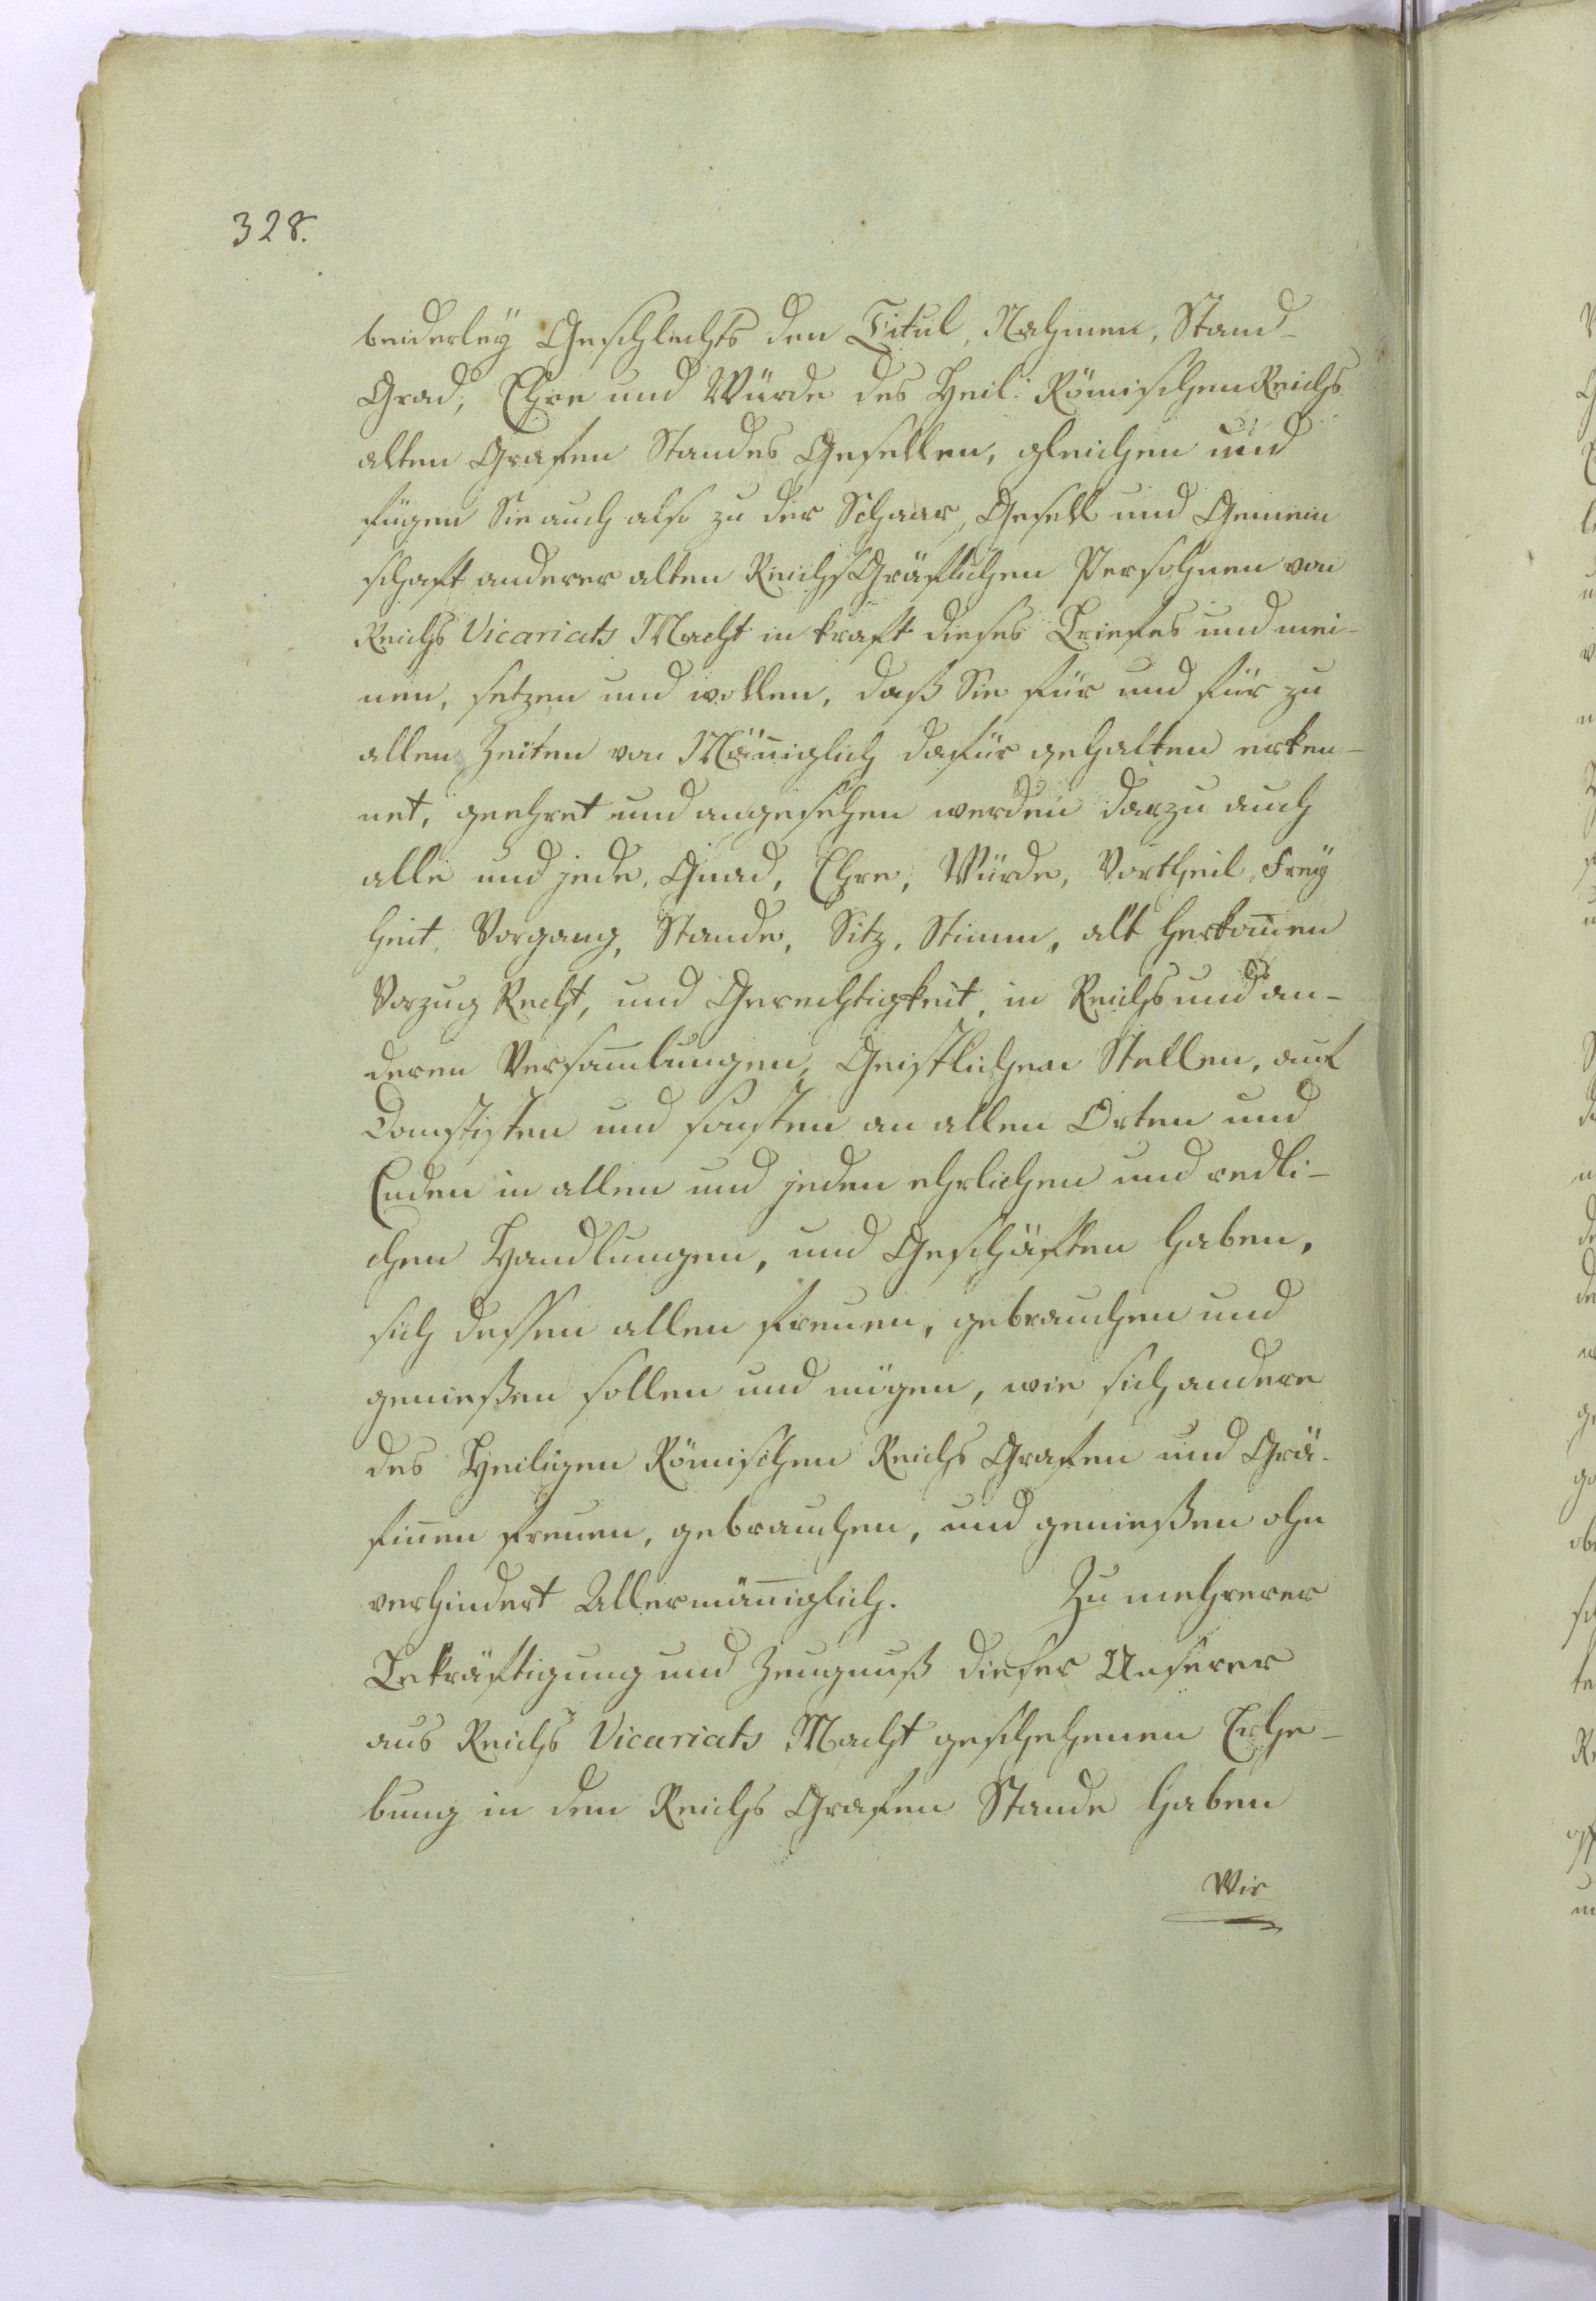 328.
beiderleÿ Geschlechts den Titul, Nahmen, Stand-
Grad, Ehre und Würde des Heil: Römischen Reichs
alten Grafen Standes Gesellen, gleichen und
fügen Sie auch also zu der Schaar, Gesell und Gemein
schaft anderer alten Reichs Gräflichen Persohnen von
Reichs Vicariats Macht in kraft dieses Briefes und mei-
nen, setzen und wollen, daß Sie für und für zu
allen Zeiten von Män̄iglich dafür gehalten erken-
net, geehret und angesehen werden darzu auch
alle und jede, Gnad, Ehre, Würde, Vortheil, Freÿ
heit, Vorgang, Stande, Sitz, Stimm, alt herkom̄en
Vorzug Recht, und Gerechtigkeit, in Reichs und an-
deren Versam̄lungen, Geistlichen Stellen, auf
Domstiften und sonsten an allen Orten und
Enden in allen und jeden ehrlichen und redli-
chen Handlungen, und Geschäften haben,
sich dessen allen freuen, gebrauchen und
genießen sollen und mögen, wie sich andere
des Heiligen Römischen Reichs Grafen und Grä-
fin̄en freuen, gebrauchen, und genießen ohn
verhindert Allermän̄iglich. Zu mehrerer
Bekräftigung und Zeugnuß dieser Unserer
aus Reichs Vicariats Macht geschehenen Erhe-
bung in den Reichs Grafen Stande haben
Wir